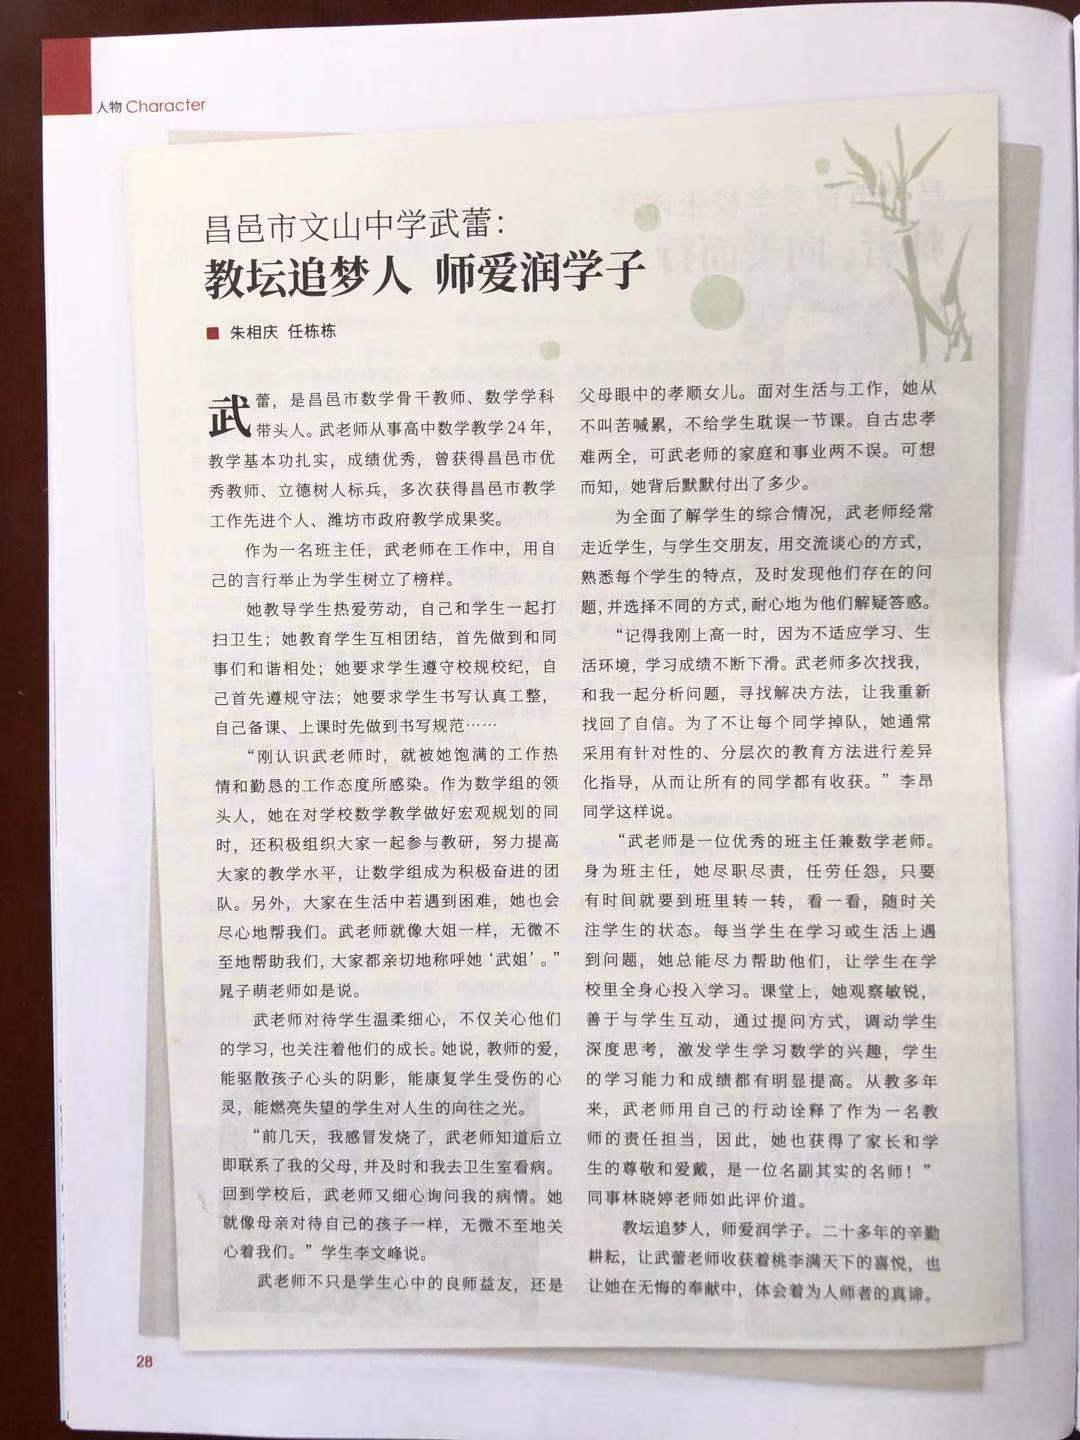 人物 Character
昌邑市文山中学武蕾：
教坛追梦人 师爱润学子
朱相庆 任栋栋
武蕾，是昌邑市数学骨干教师、数学学科
带头人。武老师从事高中数学教学24年，
教学基本功扎实，成绩优秀，曾获得昌邑市优
秀教师、立德树人标兵，多次获得昌邑市教学
工作先进个人、潍坊市政府教学成果奖。
作为一名班主任，武老师在工作中，用自
己的言行举止为学生树立了榜样。
她教导学生热爱劳动，自己和学生一起打
扫卫生；她教育学生互相团结，首先做到和同
事们和谐相处；她要求学生遵守校规校纪，自
己首先遵规守法；她要求学生书写认真工整，
自己备课、上课时先做到书写规范……
“刚认识武老师时，就被她饱满的工作热
情和勤恳的工作态度所感染。作为数学组的领
头人，她在对学校数学教学做好宏观规划的同
时，还积极组织大家一起参与教研，努力提高
大家的教学水平，让数学组成为积极奋进的团
队。另外，大家在生活中若遇到困难，她也会
尽心地帮我们。武老师就像大姐一样，无微不
至地帮助我们，大家都亲切地称呼她‘武姐’。”
晁子萌老师如是说。
武老师对待学生温柔细心，不仅关心他们
的学习，也关注着他们的成长。她说，教师的爱，
能驱散孩子心头的阴影，能康复学生受伤的心
灵，能燃亮失望的学生对人生的向往之光。
“前几天，我感冒发烧了，武老师知道后立
即联系了我的父母，并及时和我去卫生室看病。
回到学校后，武老师又细心询问我的病情。她
就像母亲对待自己的孩子一样，无微不至地关
心着我们。”学生李文峰说。
武老师不只是学生心中的良师益友，还是
父母眼中的孝顺女儿。面对生活与工作，她从
不叫苦喊累，不给学生耽误一节课。自古忠孝
难两全，可武老师的家庭和事业两不误。可想
而知，她背后默默付出了多少。
为全面了解学生的综合情况，武老师经常
走近学生，与学生交朋友，用交流谈心的方式，
熟悉每个学生的特点，及时发现他们存在的问
题，并选择不同的方式，耐心地为他们解疑答惑。
“记得我刚上高一时，因为不适应学习、生
活环境，学习成绩不断下滑。武老师多次找我，
和我一起分析问题，寻找解决方法，让我重新
找回了自信。为了不让每个同学掉队，她通常
采用有针对性的、分层次的教育方法进行差异
化指导，从而让所有的同学都有收获。”李昂
同学这样说。
“武老师是一位优秀的班主任兼数学老师。
身为班主任，她尽职尽责，任劳任怨，只要
有时间就要到班里转一转，看一看，随时关
注学生的状态。每当学生在学习或生活上遇
到问题，她总能尽力帮助他们，让学生在学
校里全身心投入学习。课堂上，她观察敏锐，
善于与学生互动，通过提问方式，调动学生
深度思考，激发学生学习数学的兴趣，学生
的学习能力和成绩都有明显提高。从教多年
来，武老师用自己的行动诠释了作为一名教
师的责任担当，因此，她也获得了家长和学
生的尊敬和爱戴，是一位名副其实的名师！”
同事林晓婷老师如此评价道。
教坛追梦人，师爱润学子。二十多年的辛勤
耕耘，让武蕾老师收获着桃李满天下的喜悦，也
让她在无悔的奉献中，体会着为人师者的真谛。
28